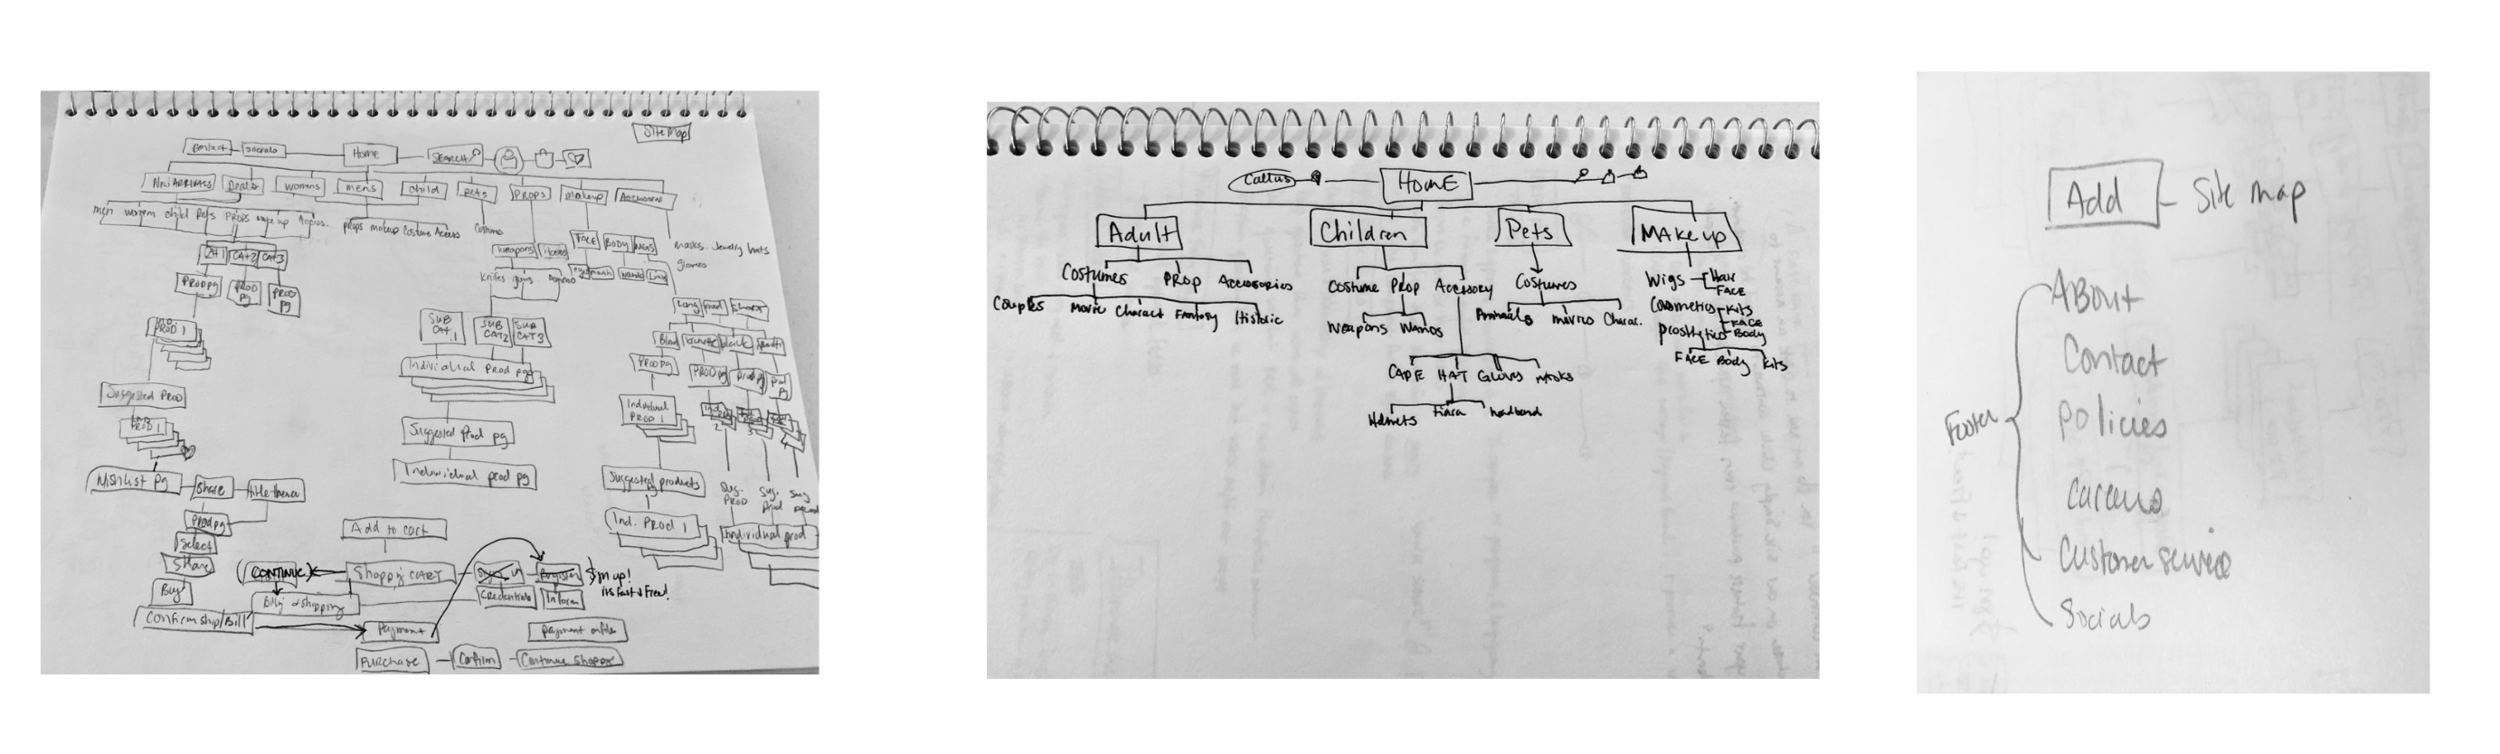 Site Map
Contact Socials Home SEARCH
New ARRIVALS Deals womens mens child pets PROPS Makeup Accessories
men women child Pets PROPS make up
props makeup Costume Access
Costume
weapons
FACE BODY WIGS
masks Jewelry hats
gloves
CAT 1 CAT 2 CAT 3
knives guns
PROD pg PROD pg PROD pg
Long med Short
SUB CAT.1 SUB CAT2 SUB CAT 3
PROD 1
Individual Prod pg
PROD pg PROD pg Prod pg Prod pg
Suggested PROD
Individual PROD 1
2 3 4
PROD 1
Suggested Prod pg
Individual prod pg
Suggested products
pg
Sug. PROD Sug. Prod Sug
Wishlist Pg Share
Prod pg
Ind. Prod 1
Individual prod
Add to cart
Select
Share
(CONTINUE) Shopp'g CART Sign in Register Sign up!
its Fast & Free!
Buy
Bill'g & Shipping Credentials
Confirm ship/Bill
Payment
Payment
PURCHASE Confirm Continue Shopp'g
Call us HomE
Adult Children Pets MAkeup
Costumes PROP Accessories
Costume Prop Accessory
Costumes
Wigs Hair
FACE
Couples Movie Charact Fantasy Historic
Weapons Wands
Animals movies Charac.
Cosmetics Kits
FACE
Body
prosthetics
FACE Body Kits
CAPE HAT Gloves masks
Helmets tiara headband
Add - Site map
Footer
About
Contact
policies
Careers
Customer service
Socials